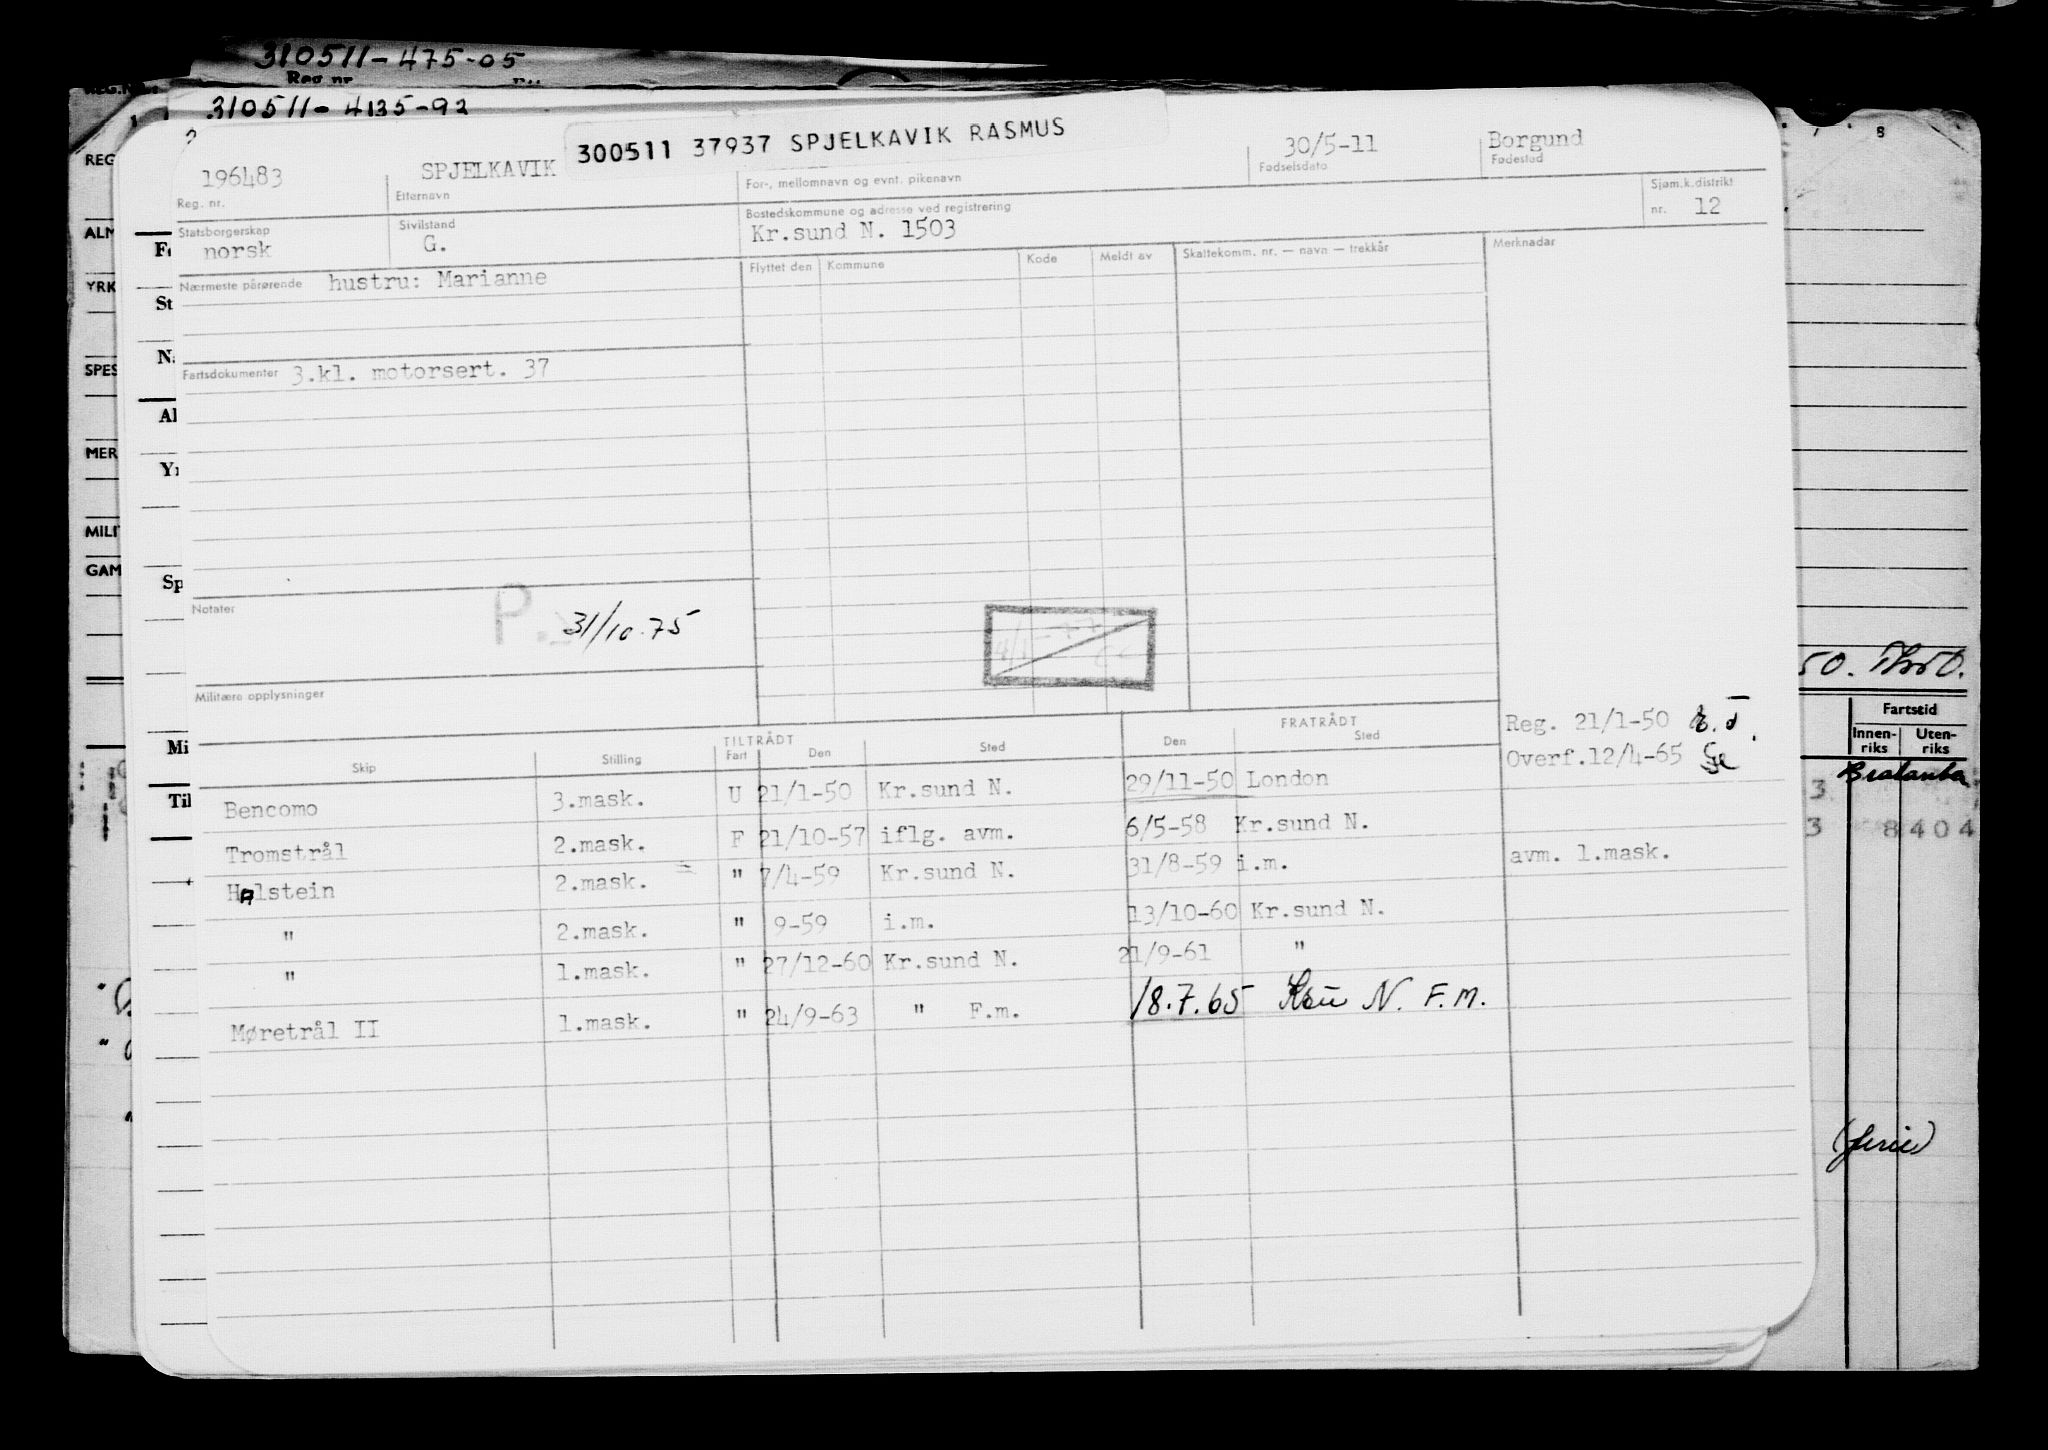 310511-475-05
Reg. nr.
310511-4135-92
300511 37937 SPJELKAVIK RASMUS
196483 SPJELKAVIK 30/5-11 Borgund
Reg. nr. Etternavn For-, mellomnavn og evnt. pikenavn Fødselsdato Fødested
Statsborgerskap Sivilstand Bostedskommune og adresse ved registrering Sjøm.k.distrikt
norsk G. Kr.sund N. 1503 nr. 12
Nærmeste pårørende hustru: Marianne Flyttet den Kommune Kode Meldt av Skattekomm. nr. — navn — trekkår Merknader
Fartsdokumenter 3.kl. motorsert. 37
Notater P. 31/10.75
Militære opplysninger
TILTRÅDT FRATRÅDT Reg. 21/1-50
Skip Stilling Fart Den Sted Den Sted Overf.12/4-65
Bencomo 3.mask. U 21/1-50 Kr.sund N. 29/11-50 London
Tromstrål 2.mask. F 21/10-57 iflg. avm. 6/5-58 Kr.sund N.
Halstein 2.mask. " 7/4-59 Kr.sund N. 31/8-59 i.m. avm. 1.mask.
" 2.mask. " 9-59 i.m. 13/10-60 Kr.sund N.
" 1.mask. " 27/12-60 Kr.sund N. 21/9-61 "
Møretrål II 1.mask. " 24/9-63 " F.m. 18.7.65 Krsu N. F.M.
REG
ALM
YRK
SPES
MER
MILIT
GAM
St
Al
Sp
Mi
Til
8
50.
Fartstid
Innen-riks Uten-riks
3
3 8404
(ferie)